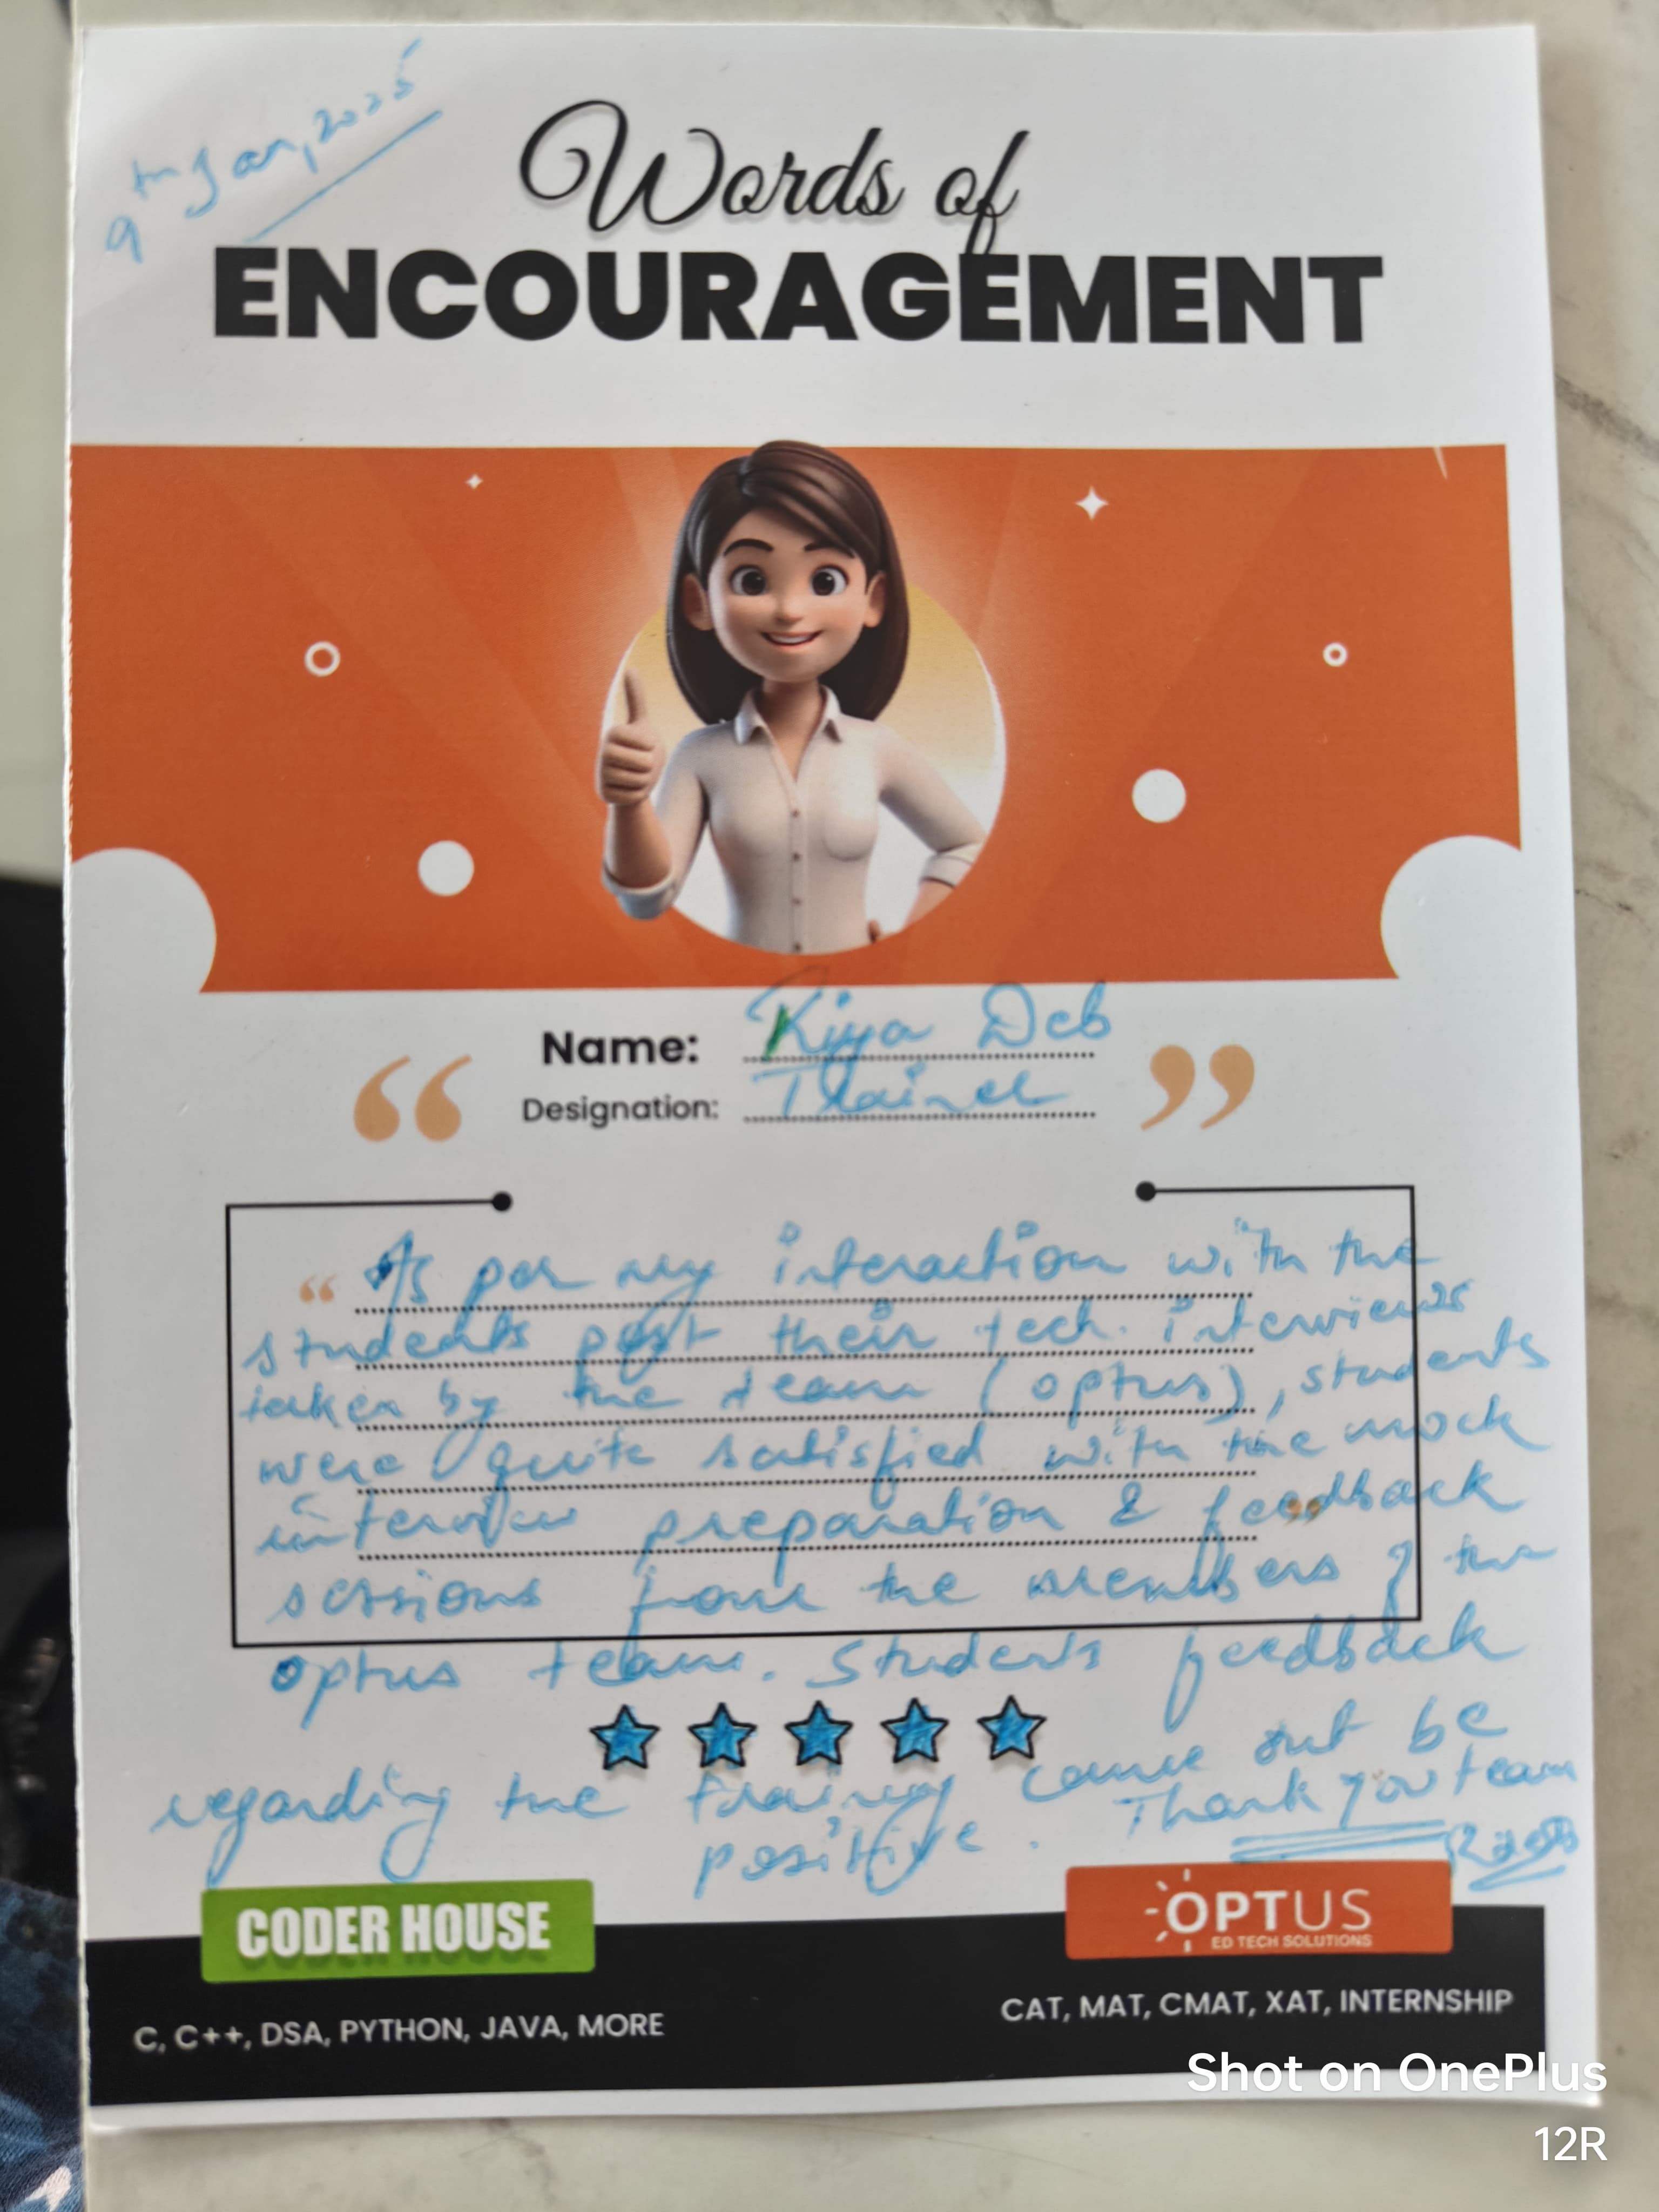 9th Jan, 2025
Words of
ENCOURAGEMENT
Name: Riya Deb
Designation: Trainer
“ As per my interaction with the
students post their tech. interviews
taken by the team (optus), students
were quite satisfied with the mock
interview preparation & feedback
sessions from the members of the
optus team. Students feedback
regarding the training came out be
positive. Thank you team
CODER HOUSE
OPTUS
ED TECH SOLUTIONS
C, C++, DSA, PYTHON, JAVA, MORE
CAT, MAT, CMAT, XAT, INTERNSHIP
Shot on OnePlus
12R